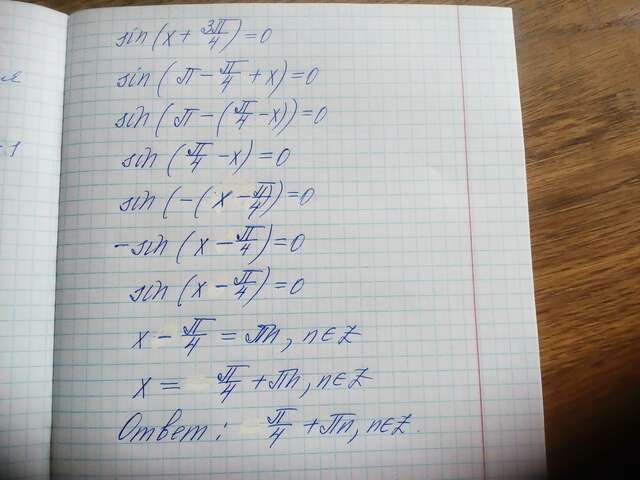 sin(x + 3π/4) = 0
sin(π - π/4 + x) = 0
sin(π - (π/4 - x)) = 0
sin(π/4 - x) = 0
sin(-(x - π/4)) = 0
-sin(x - π/4) = 0
sin(x - π/4) = 0
x - π/4 = πn, n∈Z
x = π/4 + πn, n∈Z
Ответ: π/4 + πn, n∈Z.